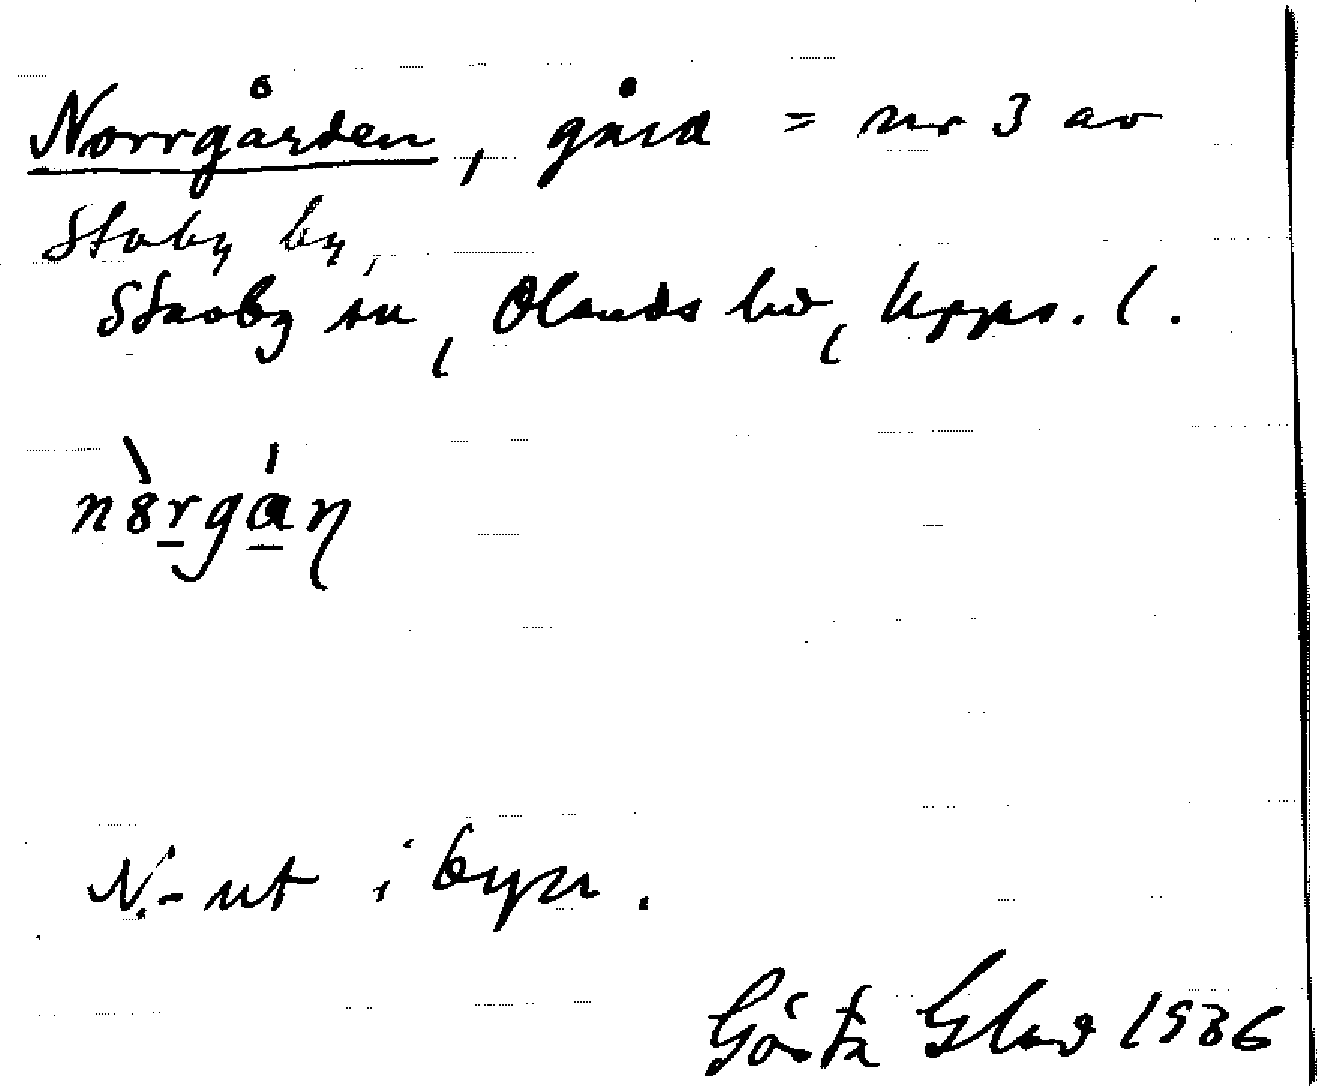 Norrgården, gård = nr 3 av
Stavby by,
Stavby sn, Olands hd, Upps. l.
N.-ut i byn.
Gösta Glad 1936